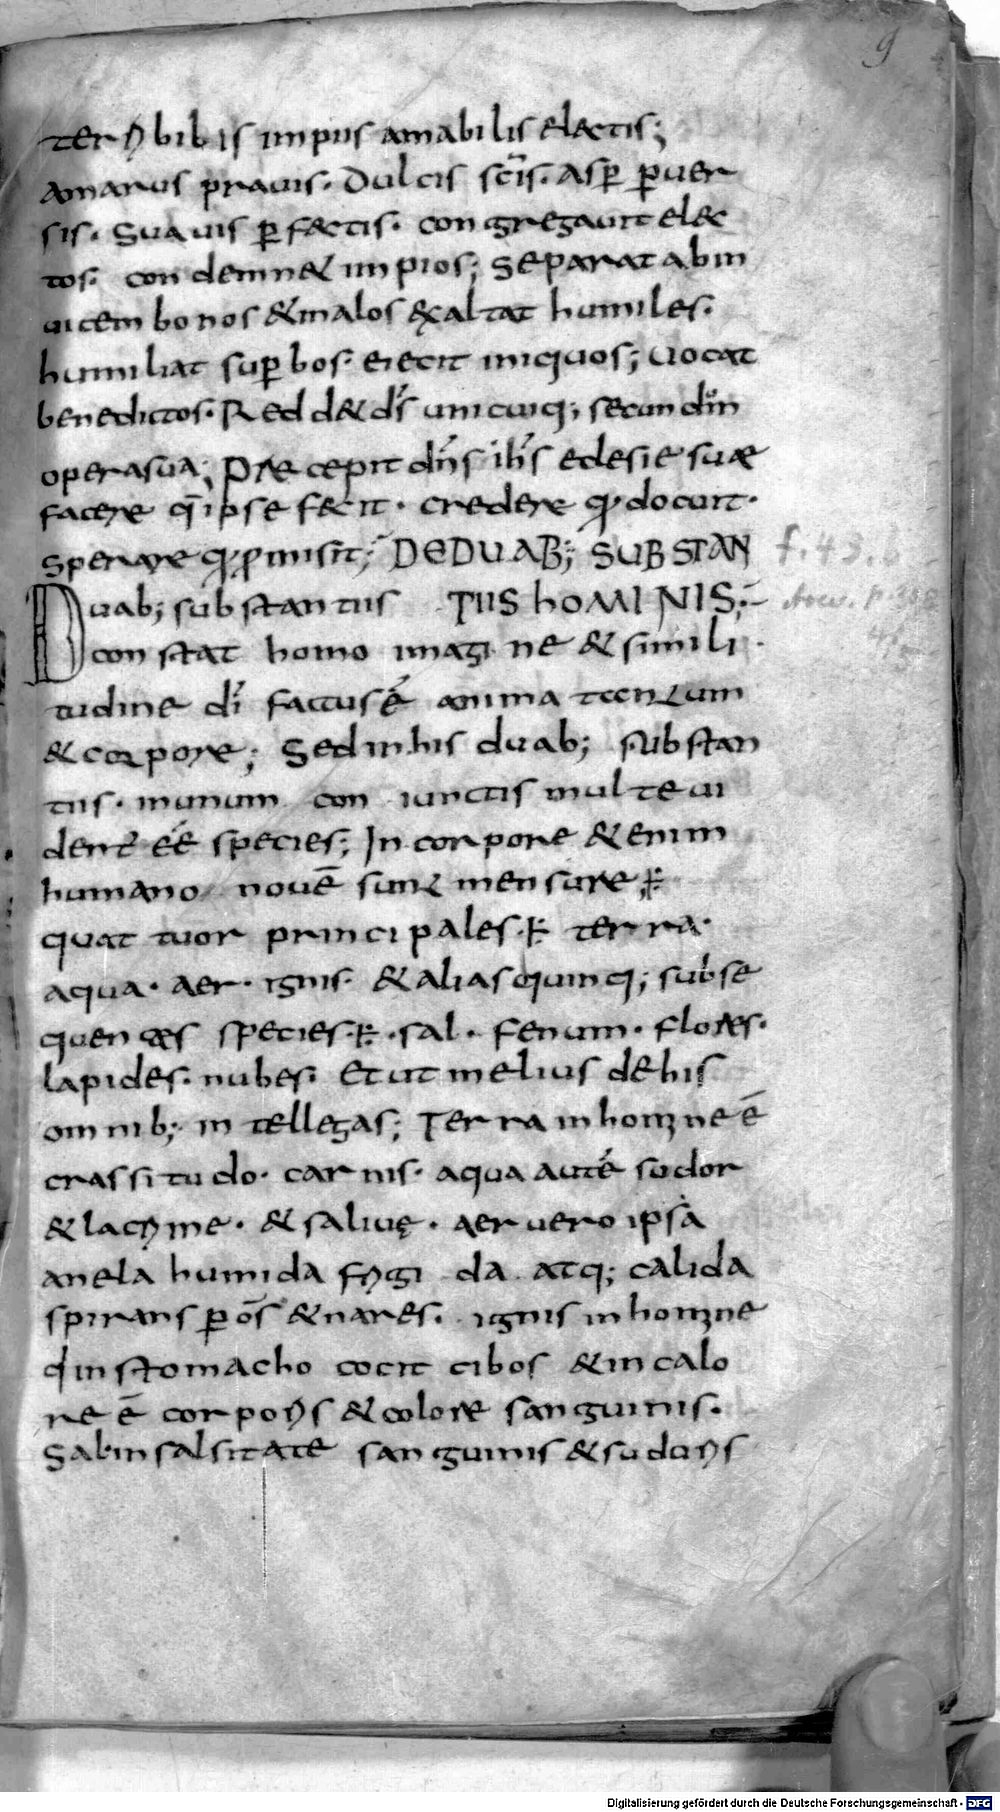 9
terribilis impiis amabilis electis;
amarus prauis. Dulcis sc̄is. Asp̄ p̄uer
sis. Suauis p̄fectis. congregauit elec
tos. condemn& impios; Separat abin
uicem bonos & malos &xaltat humiles.
humiliat sup̄bos. eiecit iniquos; Uocat
benedictos. Redd& d̄s unicuiq; secundūm
operasua; Praecepit dn̄s ih̄s eclesie suae
facere q̄ ipse fecit. credere qđ docuit.
sperare qđ p̄misit; DEDUAB; SUBSTAN
Duab; substantiis TIIS HOMINIS;
constat homo imagine & simili
tudine dī factus ē anima tantum
& corpore; Sed in his duab; substan
tiis. inunum coniunctis multe ui
dent̄ eē species; In corpore &enim
humano nouē sunt mensure;
quattuor principales. terra.
aqua. aer. ignis. & alias quinq; subse
quentes species. sal. fenum. flores.
lapides. nubes. Et ut melius de his
omnib; intellegas; Terra in homine ē
crassitudo. carnis. aqua autē sudor
& lacrime. & saliuę. aer uero ipsa
anela humida frigida atq; calida
spirans p̄ os & nares. ignis in homine
q̄ in stomacho cocit cibos & in calo
re ē corporis & colore sanguinis.
Sal in salsitate sanguinis & sudoris
f. 43. b
Digitalisierung gefördert durch die Deutsche Forschungsgemeinschaft - DFG